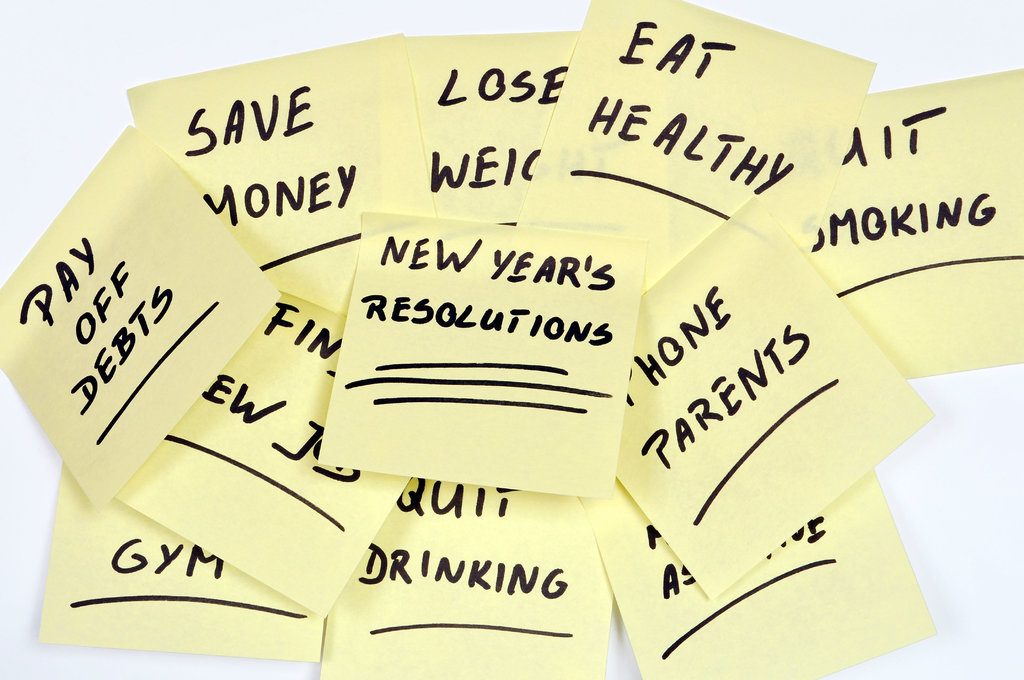 SAVE
MONEY
LOSE
WEIGHT
EAT
HEALTHY
QUIT
SMOKING
PAY
OFF
DEBTS
NEW YEAR'S
RESOLUTIONS
FIN
EW JOB
PHONE
PARENTS
GYM
QUIT
DRINKING